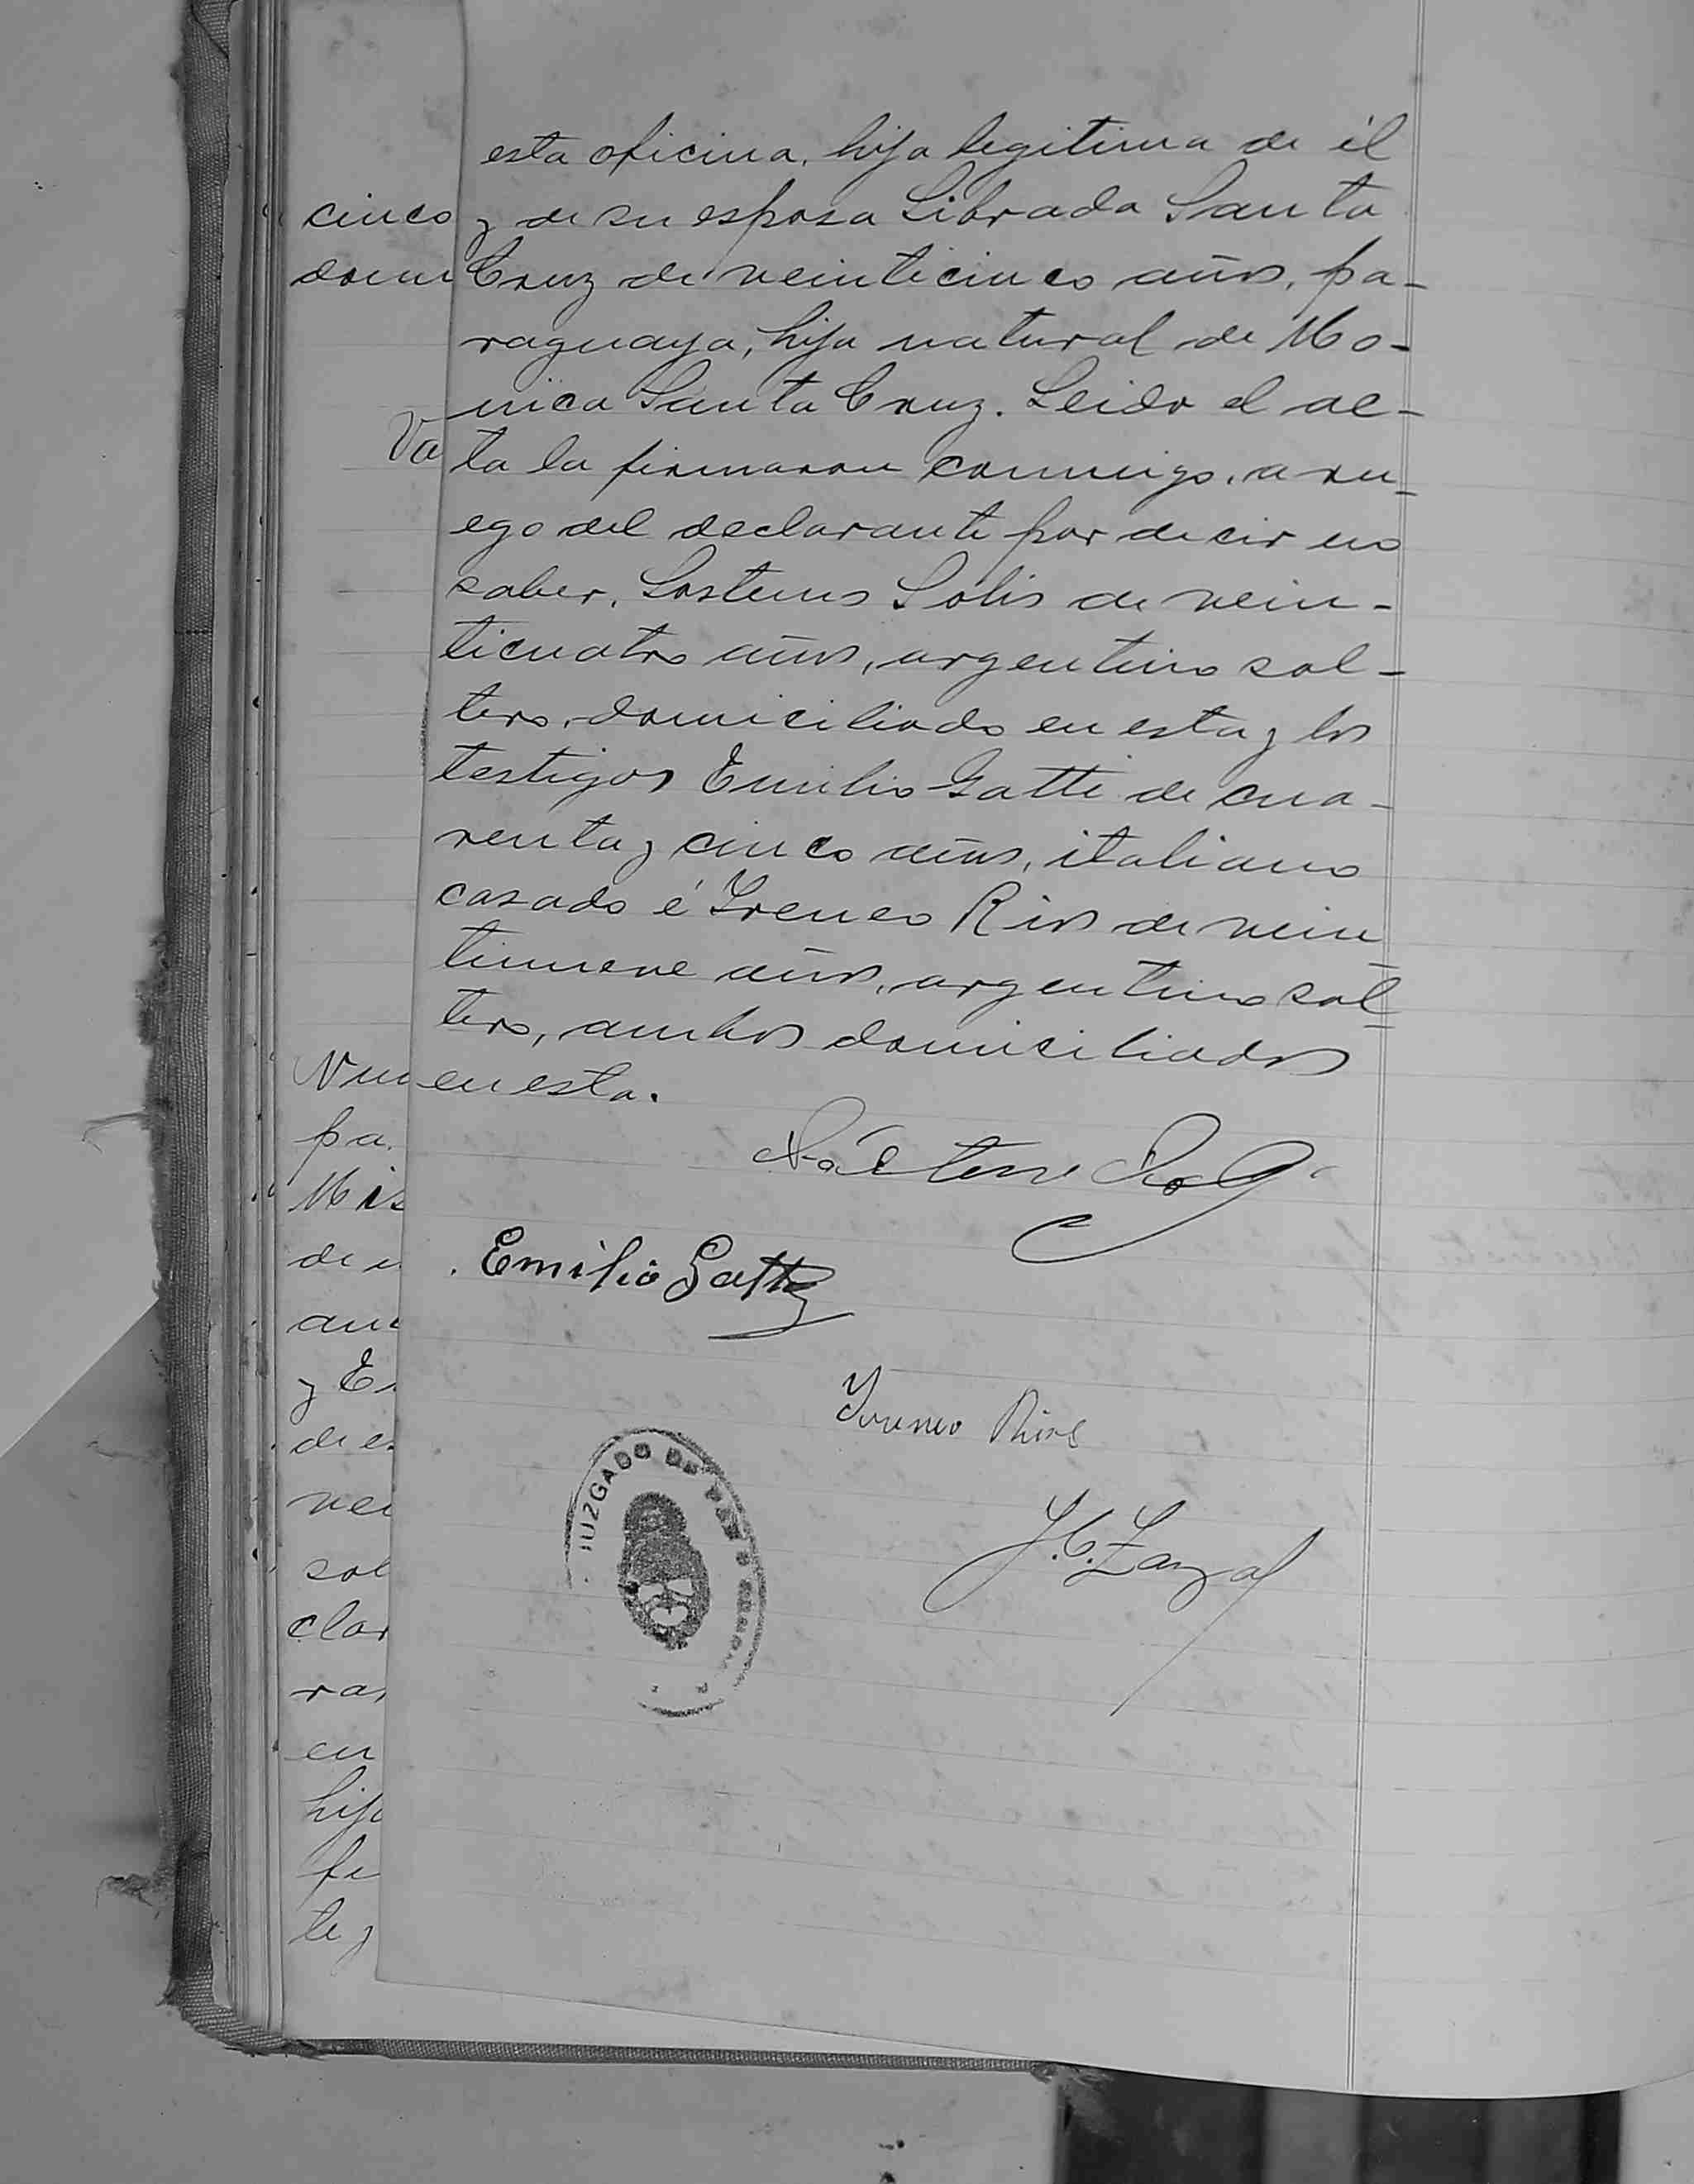 esta oficina, hija legitima de él
y de su esposa Librada Santa
Cruz de veinticinco años, pa-
raguaya, hija natural de Mo-
nica Santa Cruz. Leido el ac-
ta la firmaron conmigo, a ru-
ego del declarante por decir no
saber, Sostenes Solis de vein-
ticuatro años, argentino sol-
tero, domiciliado en esta y los
testigos Emilio Gatti de cua-
renta y cinco años, italiano
casado é Ireneo Rios de vein
tinueve años, argentino sol-
tero, ambos domiciliados
en esta.
Emilio Gatti
Ireneo Rios
JUZGADO DE PAZ
cinco
Va
Num
pa.
Mis
de
y
de
sol
clar
ras
en
hijo
te y